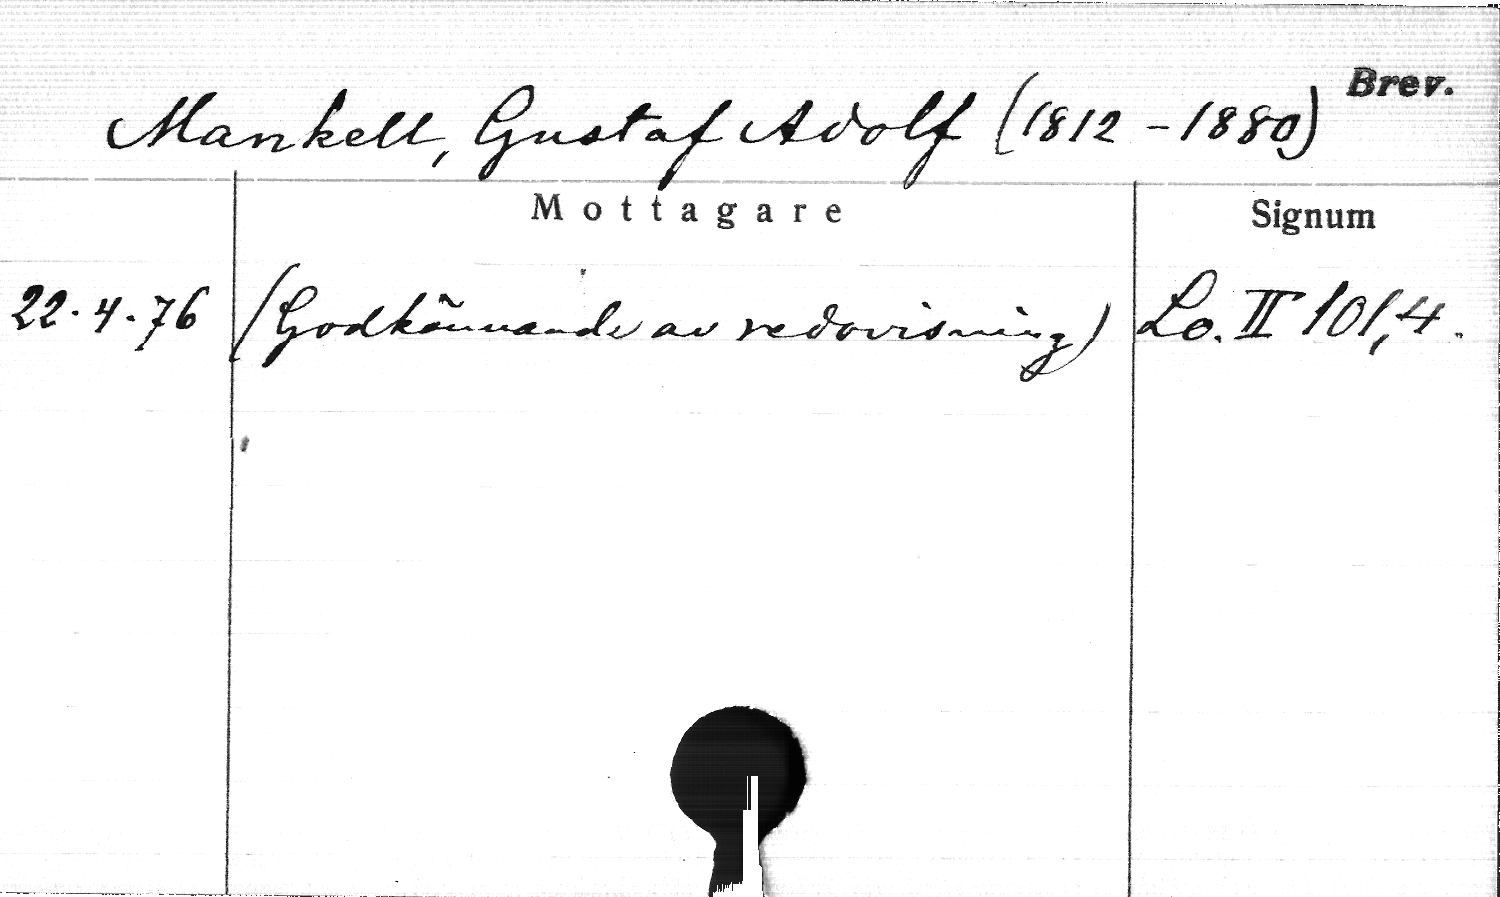 Brev.
Mankell, Gustaf Adolf (1812 - 1880)
Mottagare Signum
22.4.76 (Godkännande av redovisning) Lo. II 101,4.